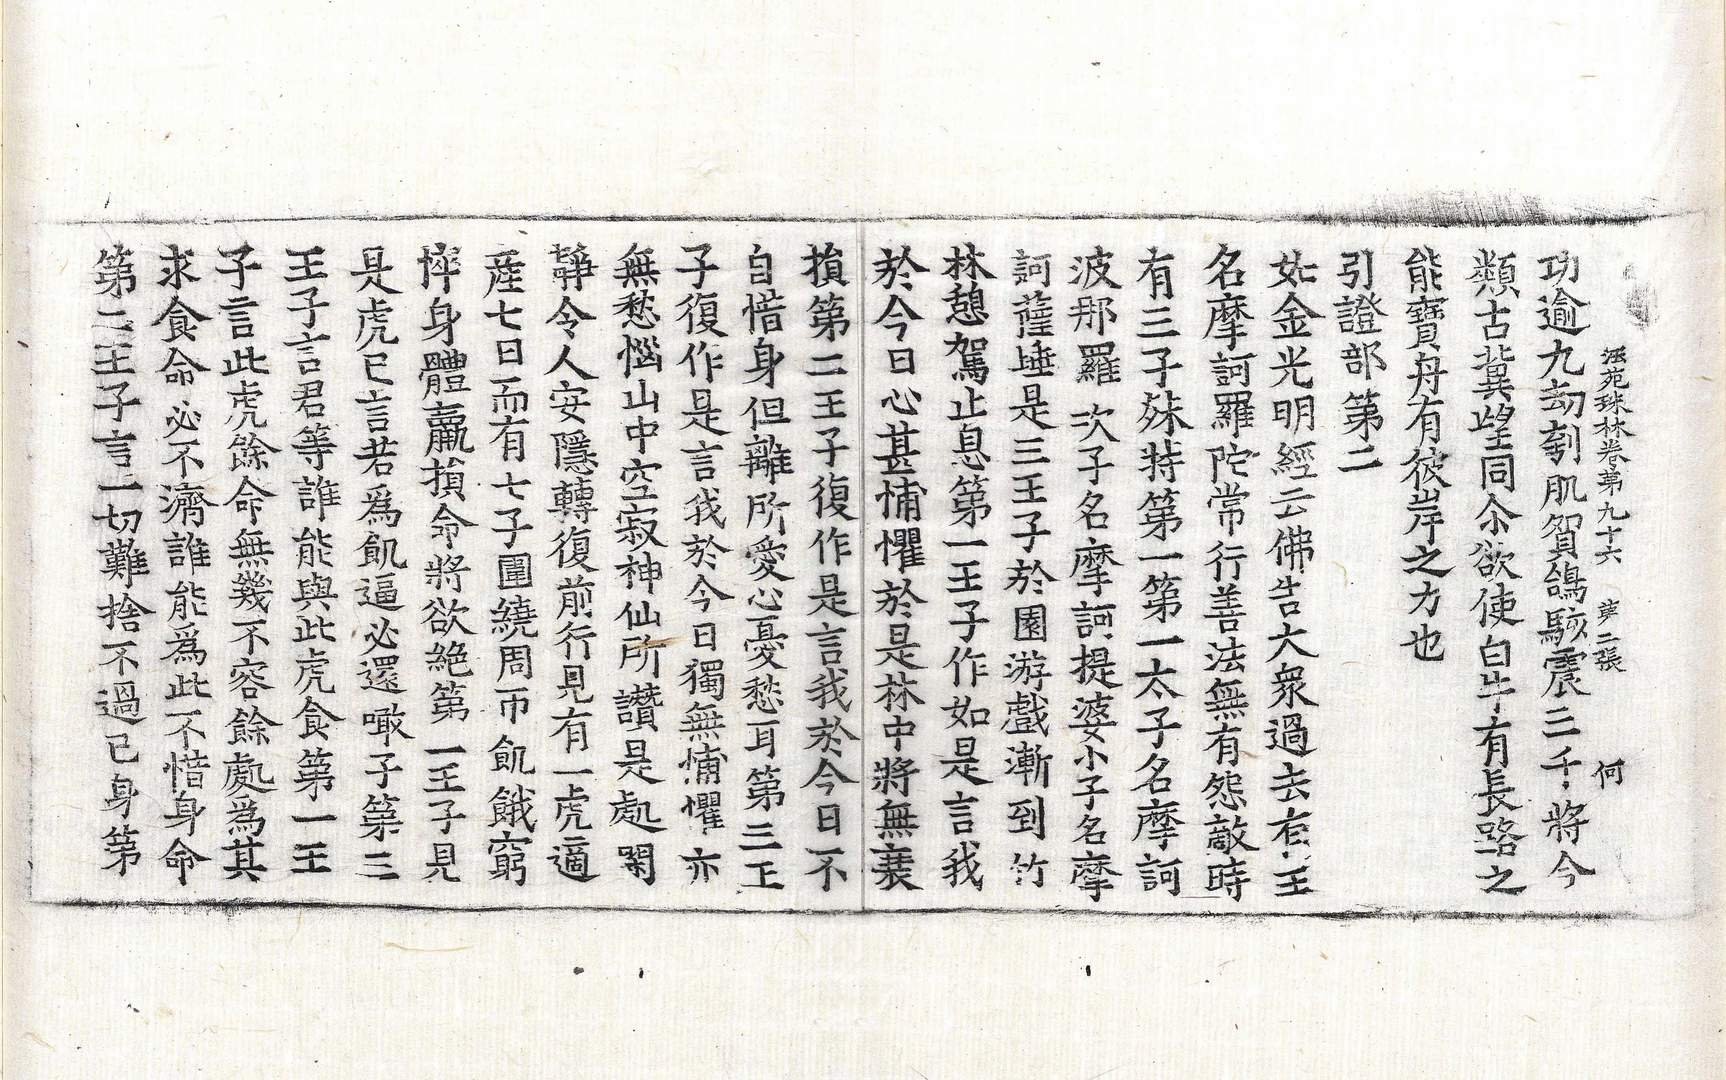 法苑珠林卷第九十六 第二張 何
功逾九劫割肌貿鴿駭震三千將今
類古冀望同尒欲使白牛有長路之
能寶舟有彼岸之力也
引證部第二
如金光明經云佛告大衆過去有王
名摩訶羅陀常行善法無有怨敵時
有三子殊特第一第一太子名摩訶
波那羅次子名摩訶提婆小子名摩
訶薩埵是三王子於園游戲漸到竹
林憩駕止息第一王子作如是言我
於今日心甚怖懼於是林中將無衰
損第二王子復作是言我於今日不
自惜身但離所愛心憂愁耳第三王
子復作是言我於今日獨無怖懼亦
無愁惱山中空寂神仙所讚是處閑
靜令人安隱轉復前行見有一虎適
產七日而有七子圍繞周帀飢餓窮
悴身體羸損命將欲絶第一王子見
是虎已言若爲飢逼必還噉子第三
王子言君等誰能與此虎食第一王
子言此虎餘命無幾不容餘處爲其
求食命必不濟誰能爲此不惜身命
第二王子言一切難捨不過己身第